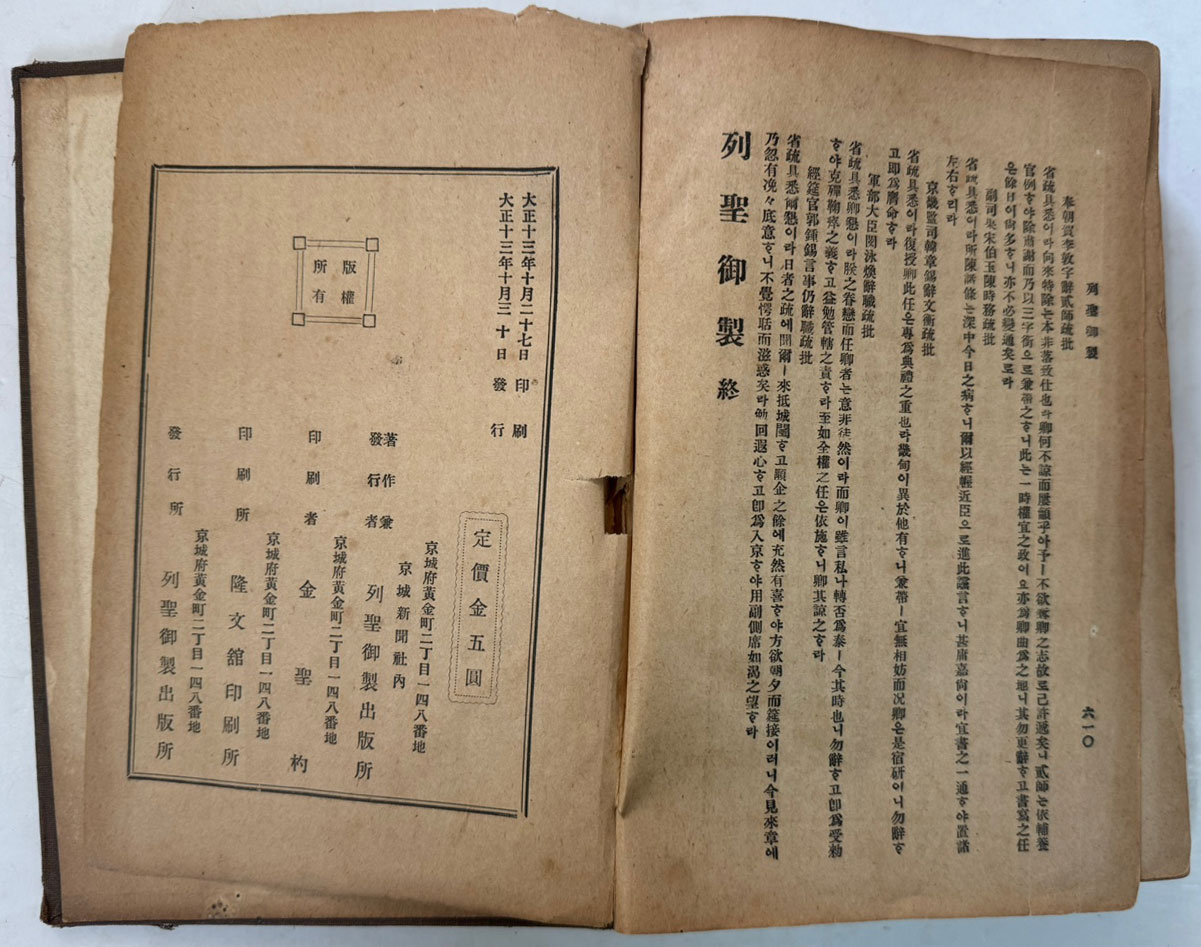 列聖御製
六一〇
奉朝賀李敦宇辭貳師疏批
省疏具悉이라向來特除는本非落致仕也라卿何不諒而屢籲乎아予ㅣ不欲奪卿之志故로己許遞矣니貳師는依輔養
官例ᄒᆞ야除肅謝而乃以三字銜으로兼帶之ᄒᆞ니此는一時權宜之政이오亦爲卿曲爲之地니其勿更辭ᄒᆞ고書寫之任
은餘日이尙多ᄒᆞ니亦不必變通矣로라
副司果宋伯玉陳時務疏批
省疏具悉이라所陳諸條는深中今日之病ᄒᆞ니爾以經幄近臣으로進此讜言ᄒᆞ니甚庸嘉尙이라宜書之一通ᄒᆞ야置諸
左右ᄒᆞ리라
京畿監司韓章錫辭文衡疏批
省疏具悉이라復授卿此任은專爲典禮之重也라畿甸이異於他有ᄒᆞ니兼帶ㅣ宜無相妨而况卿은是宿硏이니勿辭ᄒᆞ
고即爲膺命ᄒᆞ라
軍部大臣閔泳煥辭職疏批
省疏具悉卿懇이라朕之眷戀而任卿者는意非徒然이라而卿이雖言私나轉否爲泰ㅣ今其時也니勿辭ᄒᆞ고即爲受勅
ᄒᆞ야克殫鞠瘁之義ᄒᆞ고益勉管轄之責ᄒᆞ라至如全權之任은依施ᄒᆞ니卿其諒之ᄒᆞ라
經筵官郭鍾錫言事仍辭職疏批
省疏具悉爾懇이라日者之疏에聞爾ㅣ來抵城闉ᄒᆞ고顒企之餘에充然有喜ᄒᆞ야方欲朝夕而筵接이러니今見來章에
乃忽有浼々底意ᄒᆞ니不覺愕貼而滋惑矣라斯回遐心ᄒᆞ고即爲入京ᄒᆞ야用副側席如渴之望ᄒᆞ라
列聖御製 終
大正十三年十月二十七日 印刷
大正十三年十月三十日 發行
版權
所有
定價金五圓
京城府黃金町二丁目一四八番地
京城新聞社內
著作兼
發行者 列聖御製出版所
京城府黃金町二丁目一四八番地
印刷者 金聖杓
京城府黃金町二丁目一四八番地
印刷所 隆文舘印刷所
京城府黃金町二丁目一四八番地
發行所 列聖御製出版所